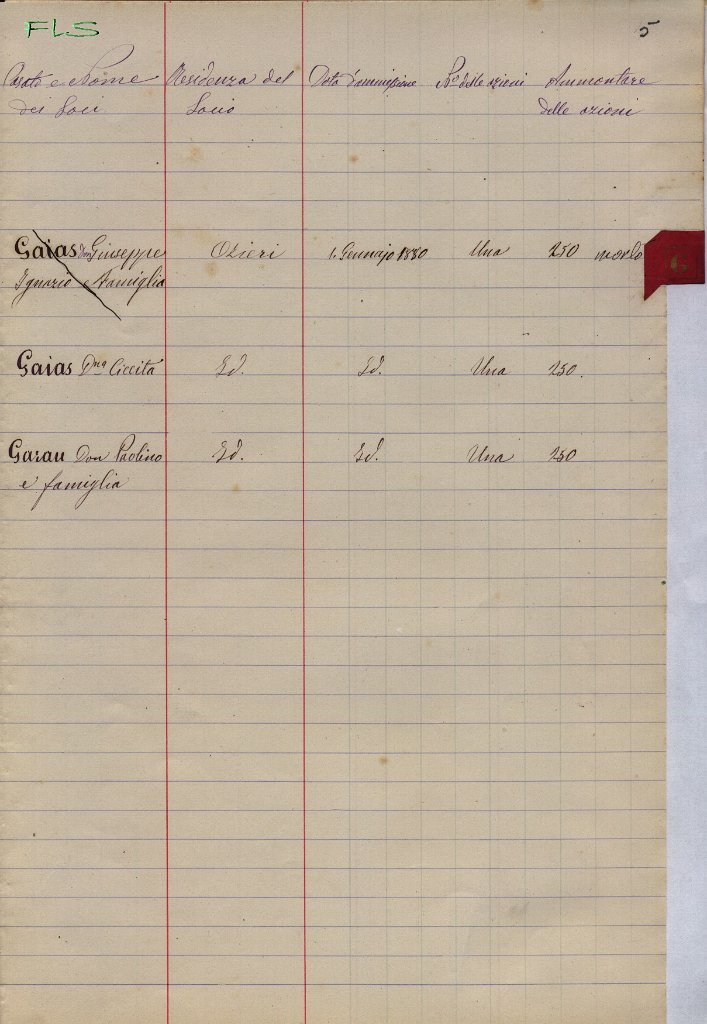 FLS
5
Casato e Nome Residenza del Data d'ammissione No delle azioni Ammontare
dei Soci Socio delle azioni
Gaias Don Giuseppe Ozieri 1. Gennajo 1880 Una 250 morto
Ignazio e Famiglia
G
Gaias Dna Ciccita Id. Id. Una 250.
Garau Don Paolino Id. Id. Una 250
e famiglia